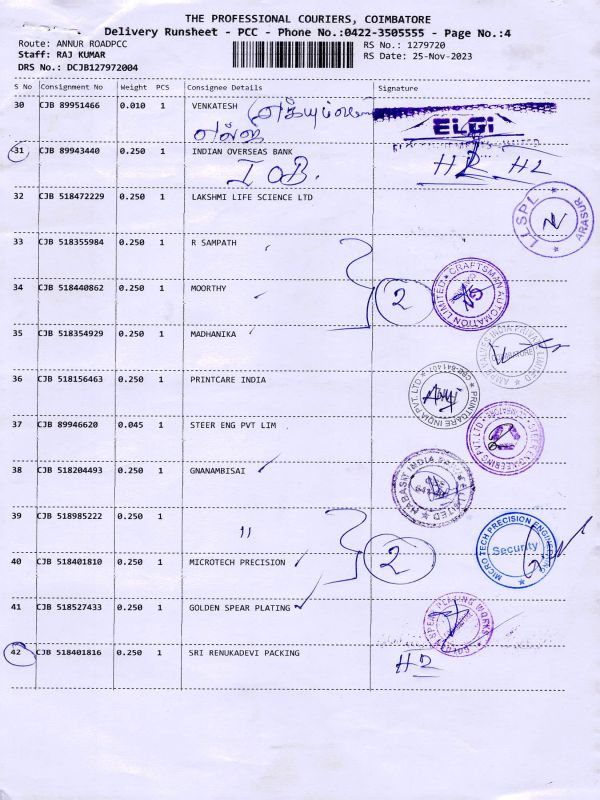 THE PROFESSIONAL COURIERS, COIMBATORE
Delivery Runsheet - PCC - Phone No.:0422-3505555 - Page No.:4
Route: ANNUR ROADPCC
RS No.: 1279720
Staff: RAJ KUMAR
RS Date: 25-Nov-2023
DRS No.: DCJB127972004
S No Consignment No Weight PCS Consignee Details Signature
30 CJB 89951466 0.010 1 VENKATESH
ELGI
31 CJB 89943440 0.250 1 INDIAN OVERSEAS BANK
IOB. H2 H2
32 CJB 518472229 0.250 1 LAKSHMI LIFE SCIENCE LTD
LLSPL ARASUR
33 CJB 518355984 0.250 1 R SAMPATH
34 CJB 518440862 0.250 1 MOORTHY
2
CRAFTSMAN AUTOMATION LIMITED
35 CJB 518354929 0.250 1 MADHANIKA
36 CJB 518156463 0.250 1 PRINTCARE INDIA
PRINTCARE INDIA PVT. LTD CBE-641407
37 CJB 89946620 0.045 1 STEER ENG PVT LIM
STEER ENGINEERING PVT. LTD
38 CJB 518204493 0.250 1 GNANAMBISAI
HABASIT INDIA
39 CJB 518985222 0.250 1
"
2
40 CJB 518401810 0.250 1 MICROTECH PRECISION
MICRO TECH PRECISION ENGINEERING
Security
41 CJB 518527433 0.250 1 GOLDEN SPEAR PLATING
GOLDEN SPEAR PLATING WORKS
42 CJB 518401816 0.250 1 SRI RENUKADEVI PACKING
H2